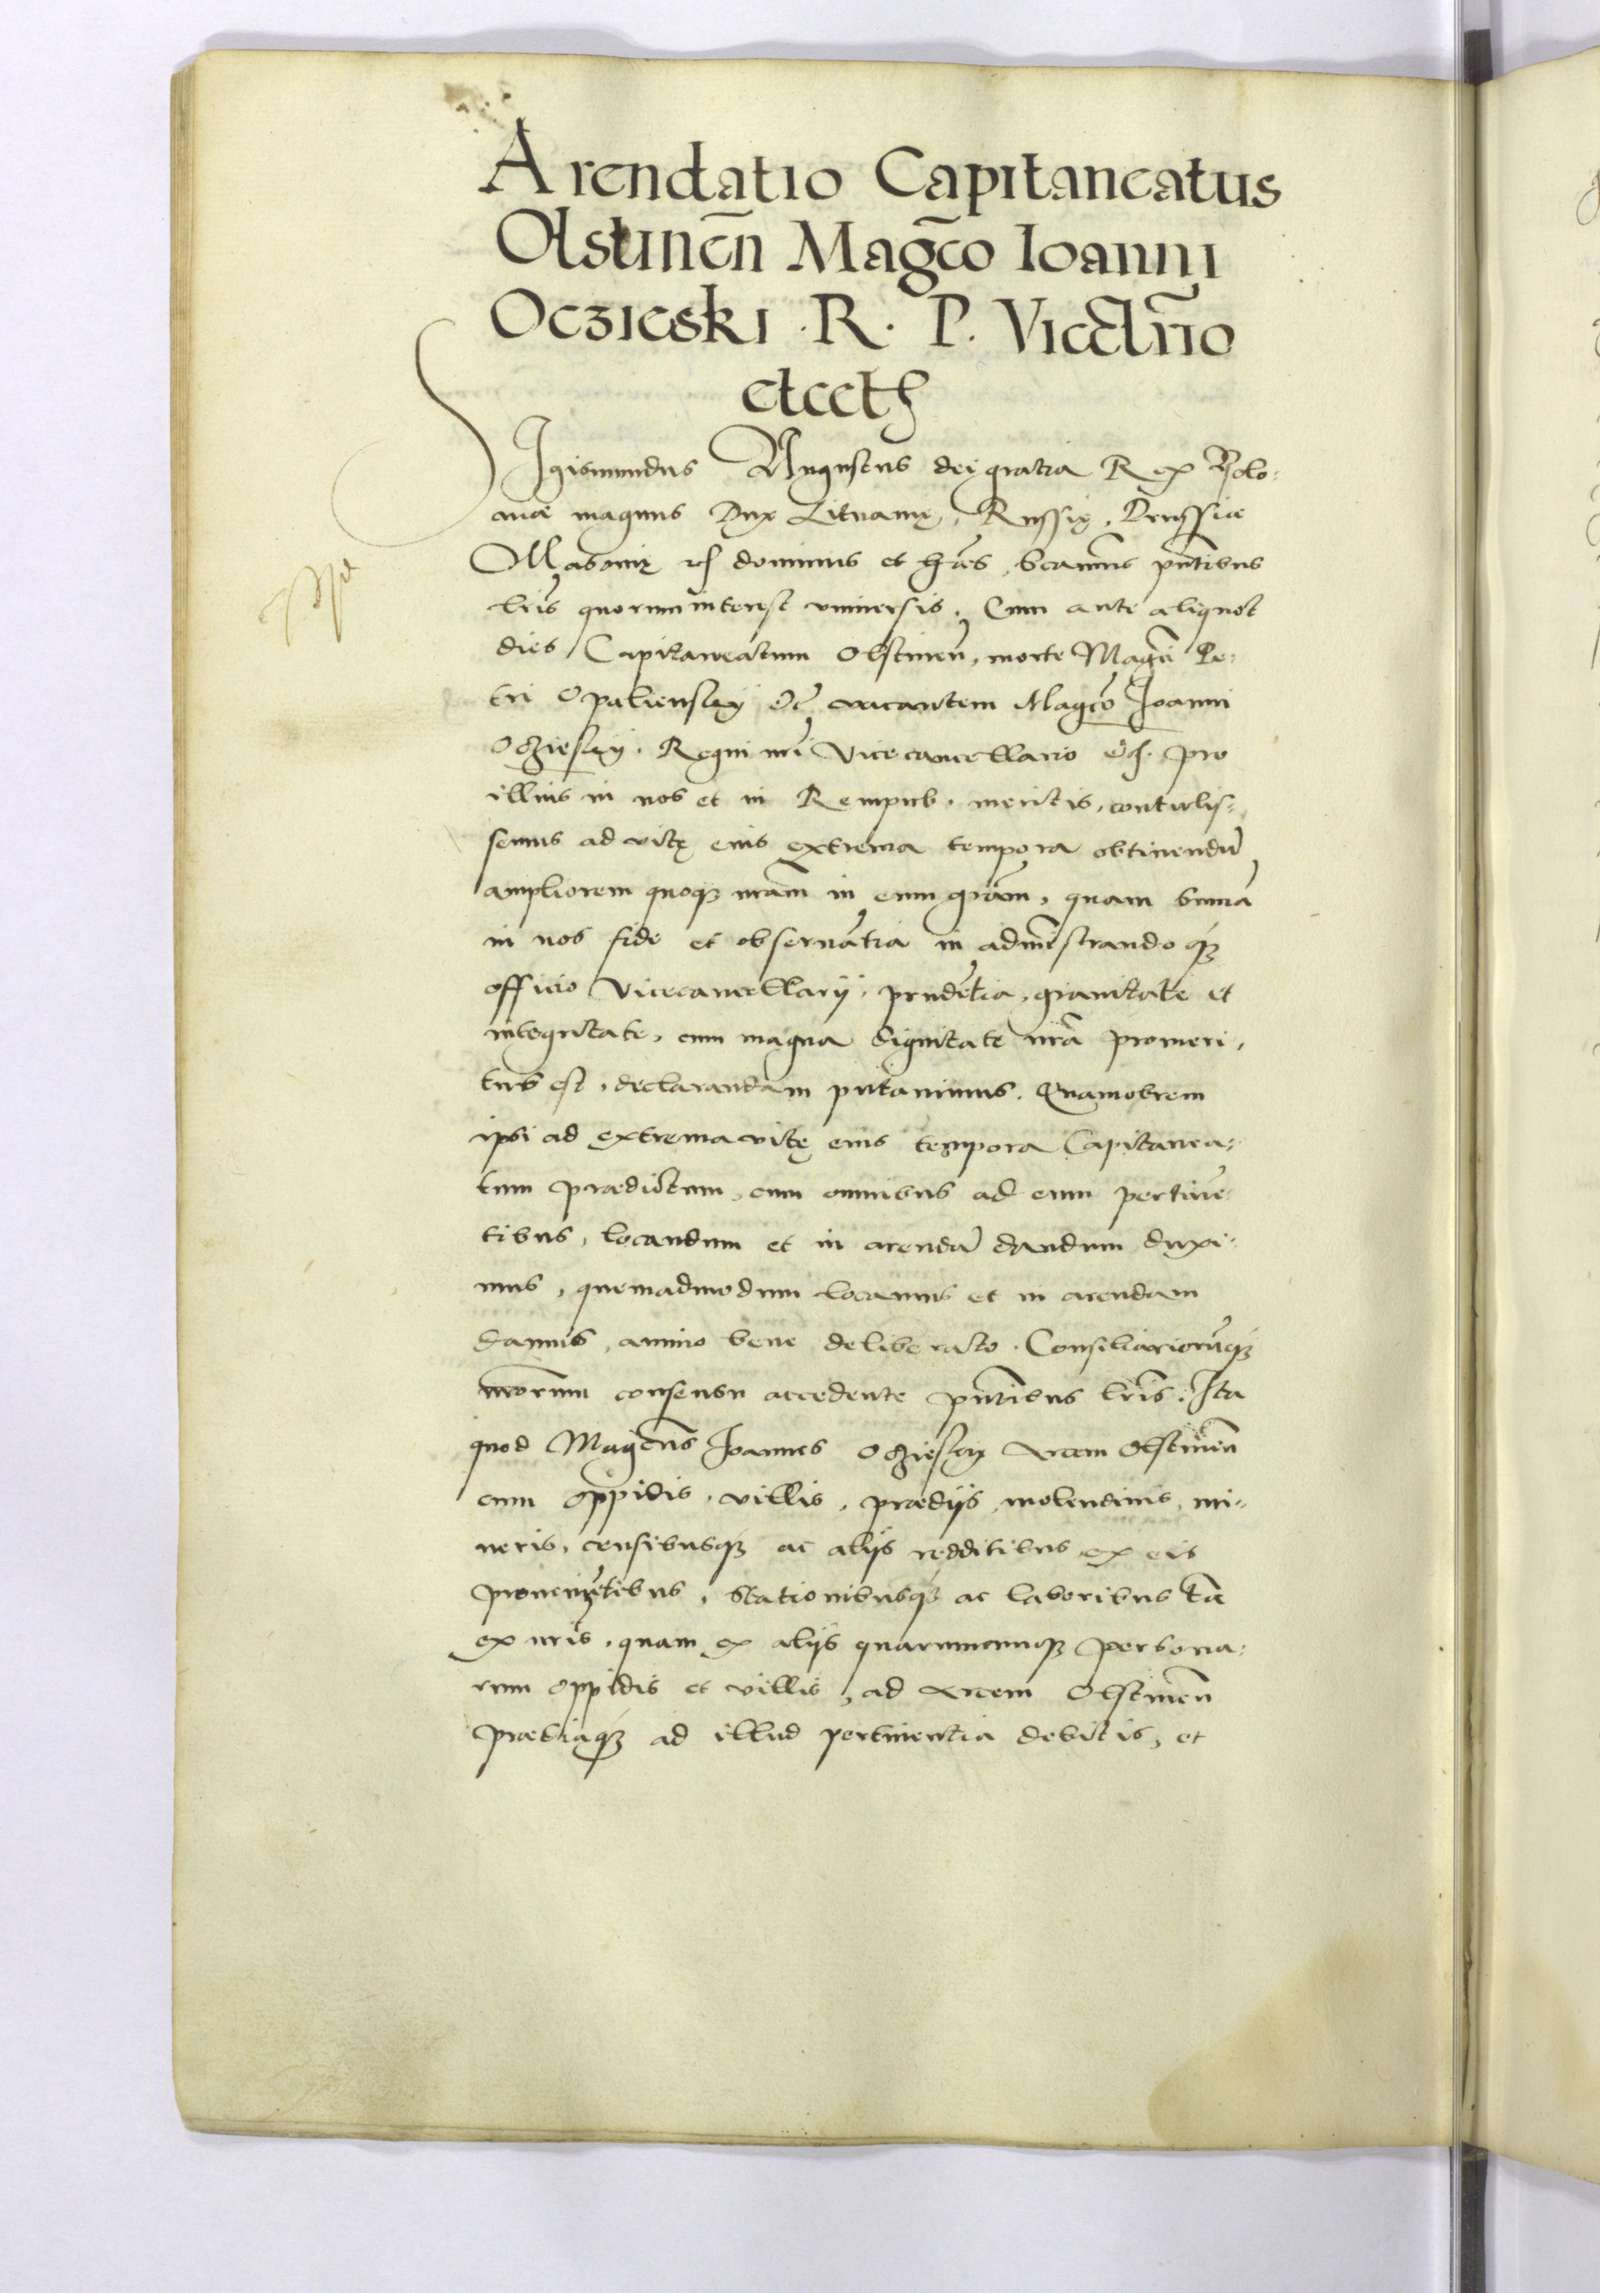 Arendatio Capitaneatus
Olstinen̄ Magc̄o Ioanni
Oczieski . R . P . Vicecln̄rio
etcet
Sigismundus Augustus dei gratia Rex Polo-
niæ magnus Dux Lituanię, Russię, Prussiæ
Masovię etc dominus et hæres, Significamus pn̄tibus
lr̄is quorum interest vniuersis, Cum ante aliquot
dies Capitaneatum Olstinen̄, morte Magci Pe-
tri Opalienskij etc vacantem Magc̄o Joanni
Oczieskij. Regni nr̄i Vicecancellario etc. pro
illius in nos et in Rempub. meritis, contulis-
semus ad vitę eius extrema tempora obtinendū
ampliorem quoque nr̄am in eum grām, quam summa
in nos fide et obseruātia in admīstrando que
officio Vicecancellarij, prudētia, grauitate et
integritate, cum magna dignitate nr̄a promeri-
tus est, declarandam putauimus. Quamobrem
ipsi ad extrema vitę eius tempora Capitanea-
tum prædictum, cum omnibus ad eum pertinē-
tibus, locandum et in arendā dandum duxi-
mus, quemadmodum locamus et in arendam
damus, animo bene deliberato. Consiliariorūque
nr̄orum consensu accedente pn̄tibus lr̄is. Ita
quod Magcus Joannes Ocziesky Arcem Olstinen̄
cum oppidis, villis, prædijs, molendinis, mi-
neris, censibusque ac alijs redditibus ex eis
proueniētibus, stationibusque ac laboribus tā
ex nr̄is, quam ex alijs quarumcumque persona-
rum oppidis et villis, ad Arcem Olstinen̄
prædiaque ad illud pertinentia debitis, et